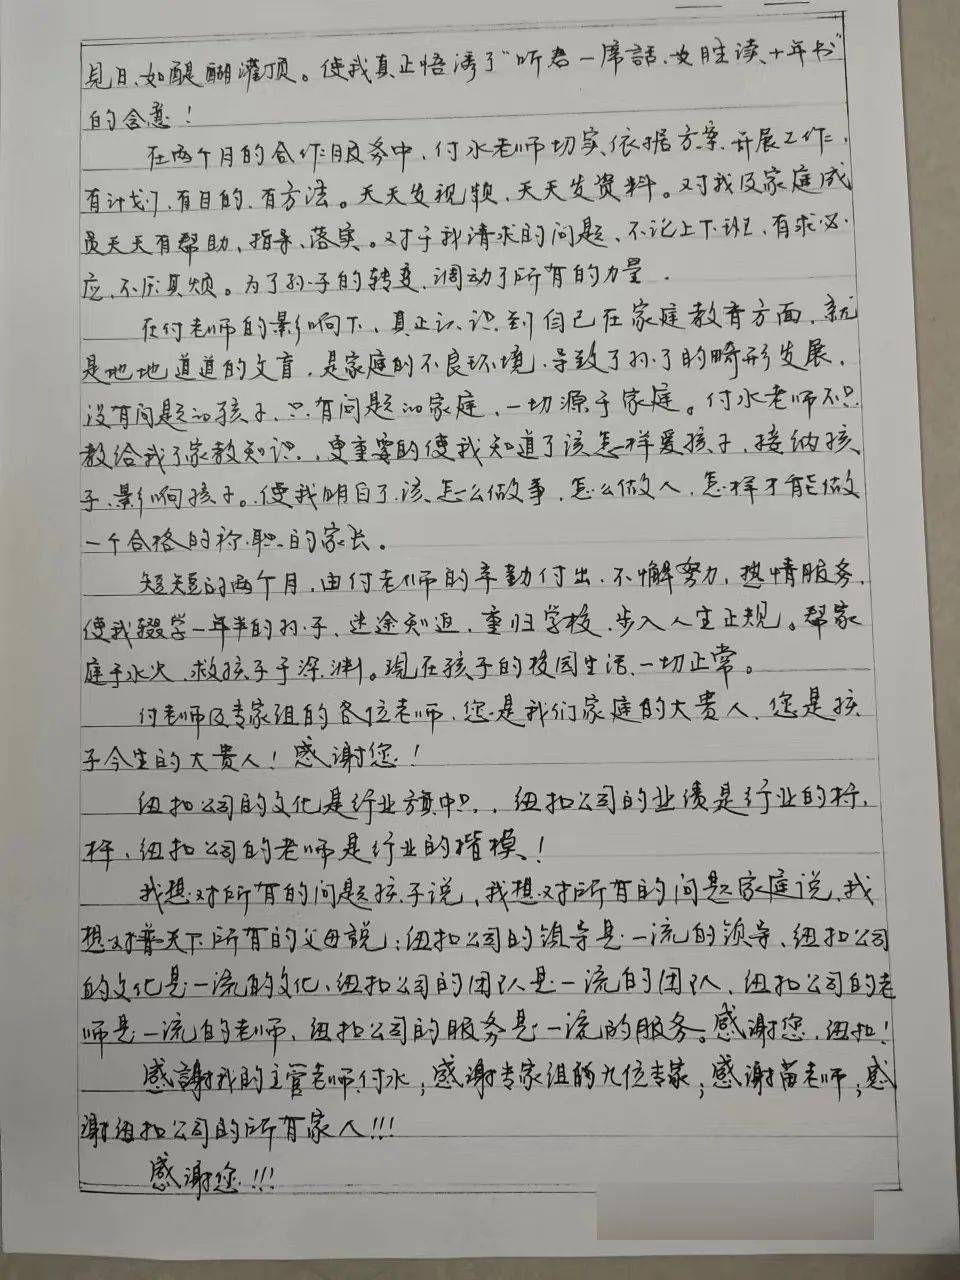 見日、如醍醐灌顶。使我真正悟透了“听君一席話、如胜读十年书”
的含意！
在两个月的合作服务中、付水老师切实依据方案开展工作、
有计划、有目的、有方法。天天发视频、天天发资料。对我及家庭成
员天天有帮助、指导、落实。对于我请求的问题、不论上下班、有求必
应、不厌其烦。为了孙子的转变、调动了所有的力量.
在付老师的影响下、真正认识到自己在家庭教育方面、就
是地地道道的文盲、是家庭的不良环境、导致了孙子的畸形发展、
没有问题的孩子、只有问题的家庭、一切源于家庭。付水老师不只
教给我了家教知识、更重要的使我知道了该怎样爱孩子、接纳孩
子、影响孩子。使我明白了、该怎么做事、怎么做人、怎样才能做
一个合格的称职的家长。
短短的两个月、由付老师的辛勤付出、不懈努力、热情服务、
使我辍学一年半的孙子、迷途知迫、重归学校、步入人生正规。帮家
庭于水火、救孩子于深渊。现在孩子的校园生活、一切正常。
付老师及专家组的各位老师、您是我们家庭的大贵人、您是孩
子今生的大贵人！感谢您！
纽扣公司的文化是行业旗中只、、纽扣公司的业绩是行业的标、
杆、纽扣公司的老师是行业的揩模！
我想对所有的问题孩子说、我想对所有的问题家庭说、我
想对普天下所有的父母説：纽扣公司的领导是一流的领导、纽扣公司
的文化是一流的文化、纽扣公司的团队是一流的团队、纽扣公司的老
师是一流的老师、纽扣公司的服务是一流的服务。感谢您、纽扣！
感謝我的主管老师付水；感谢专家组的九位专家；感谢苗老师；感
谢纽扣公司的所有家人!!!
感谢您!!!